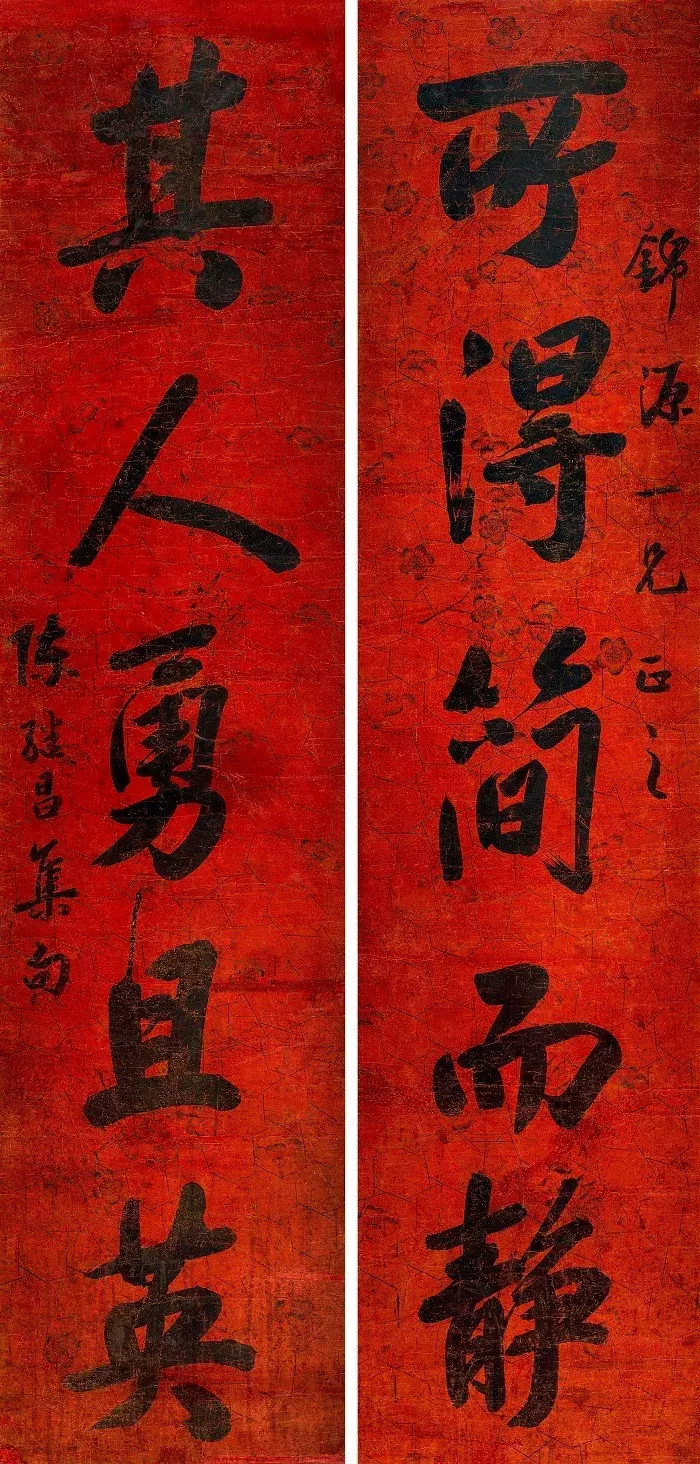 錦源一兄正之
所得简而静
其人勇且英
陈继昌集句